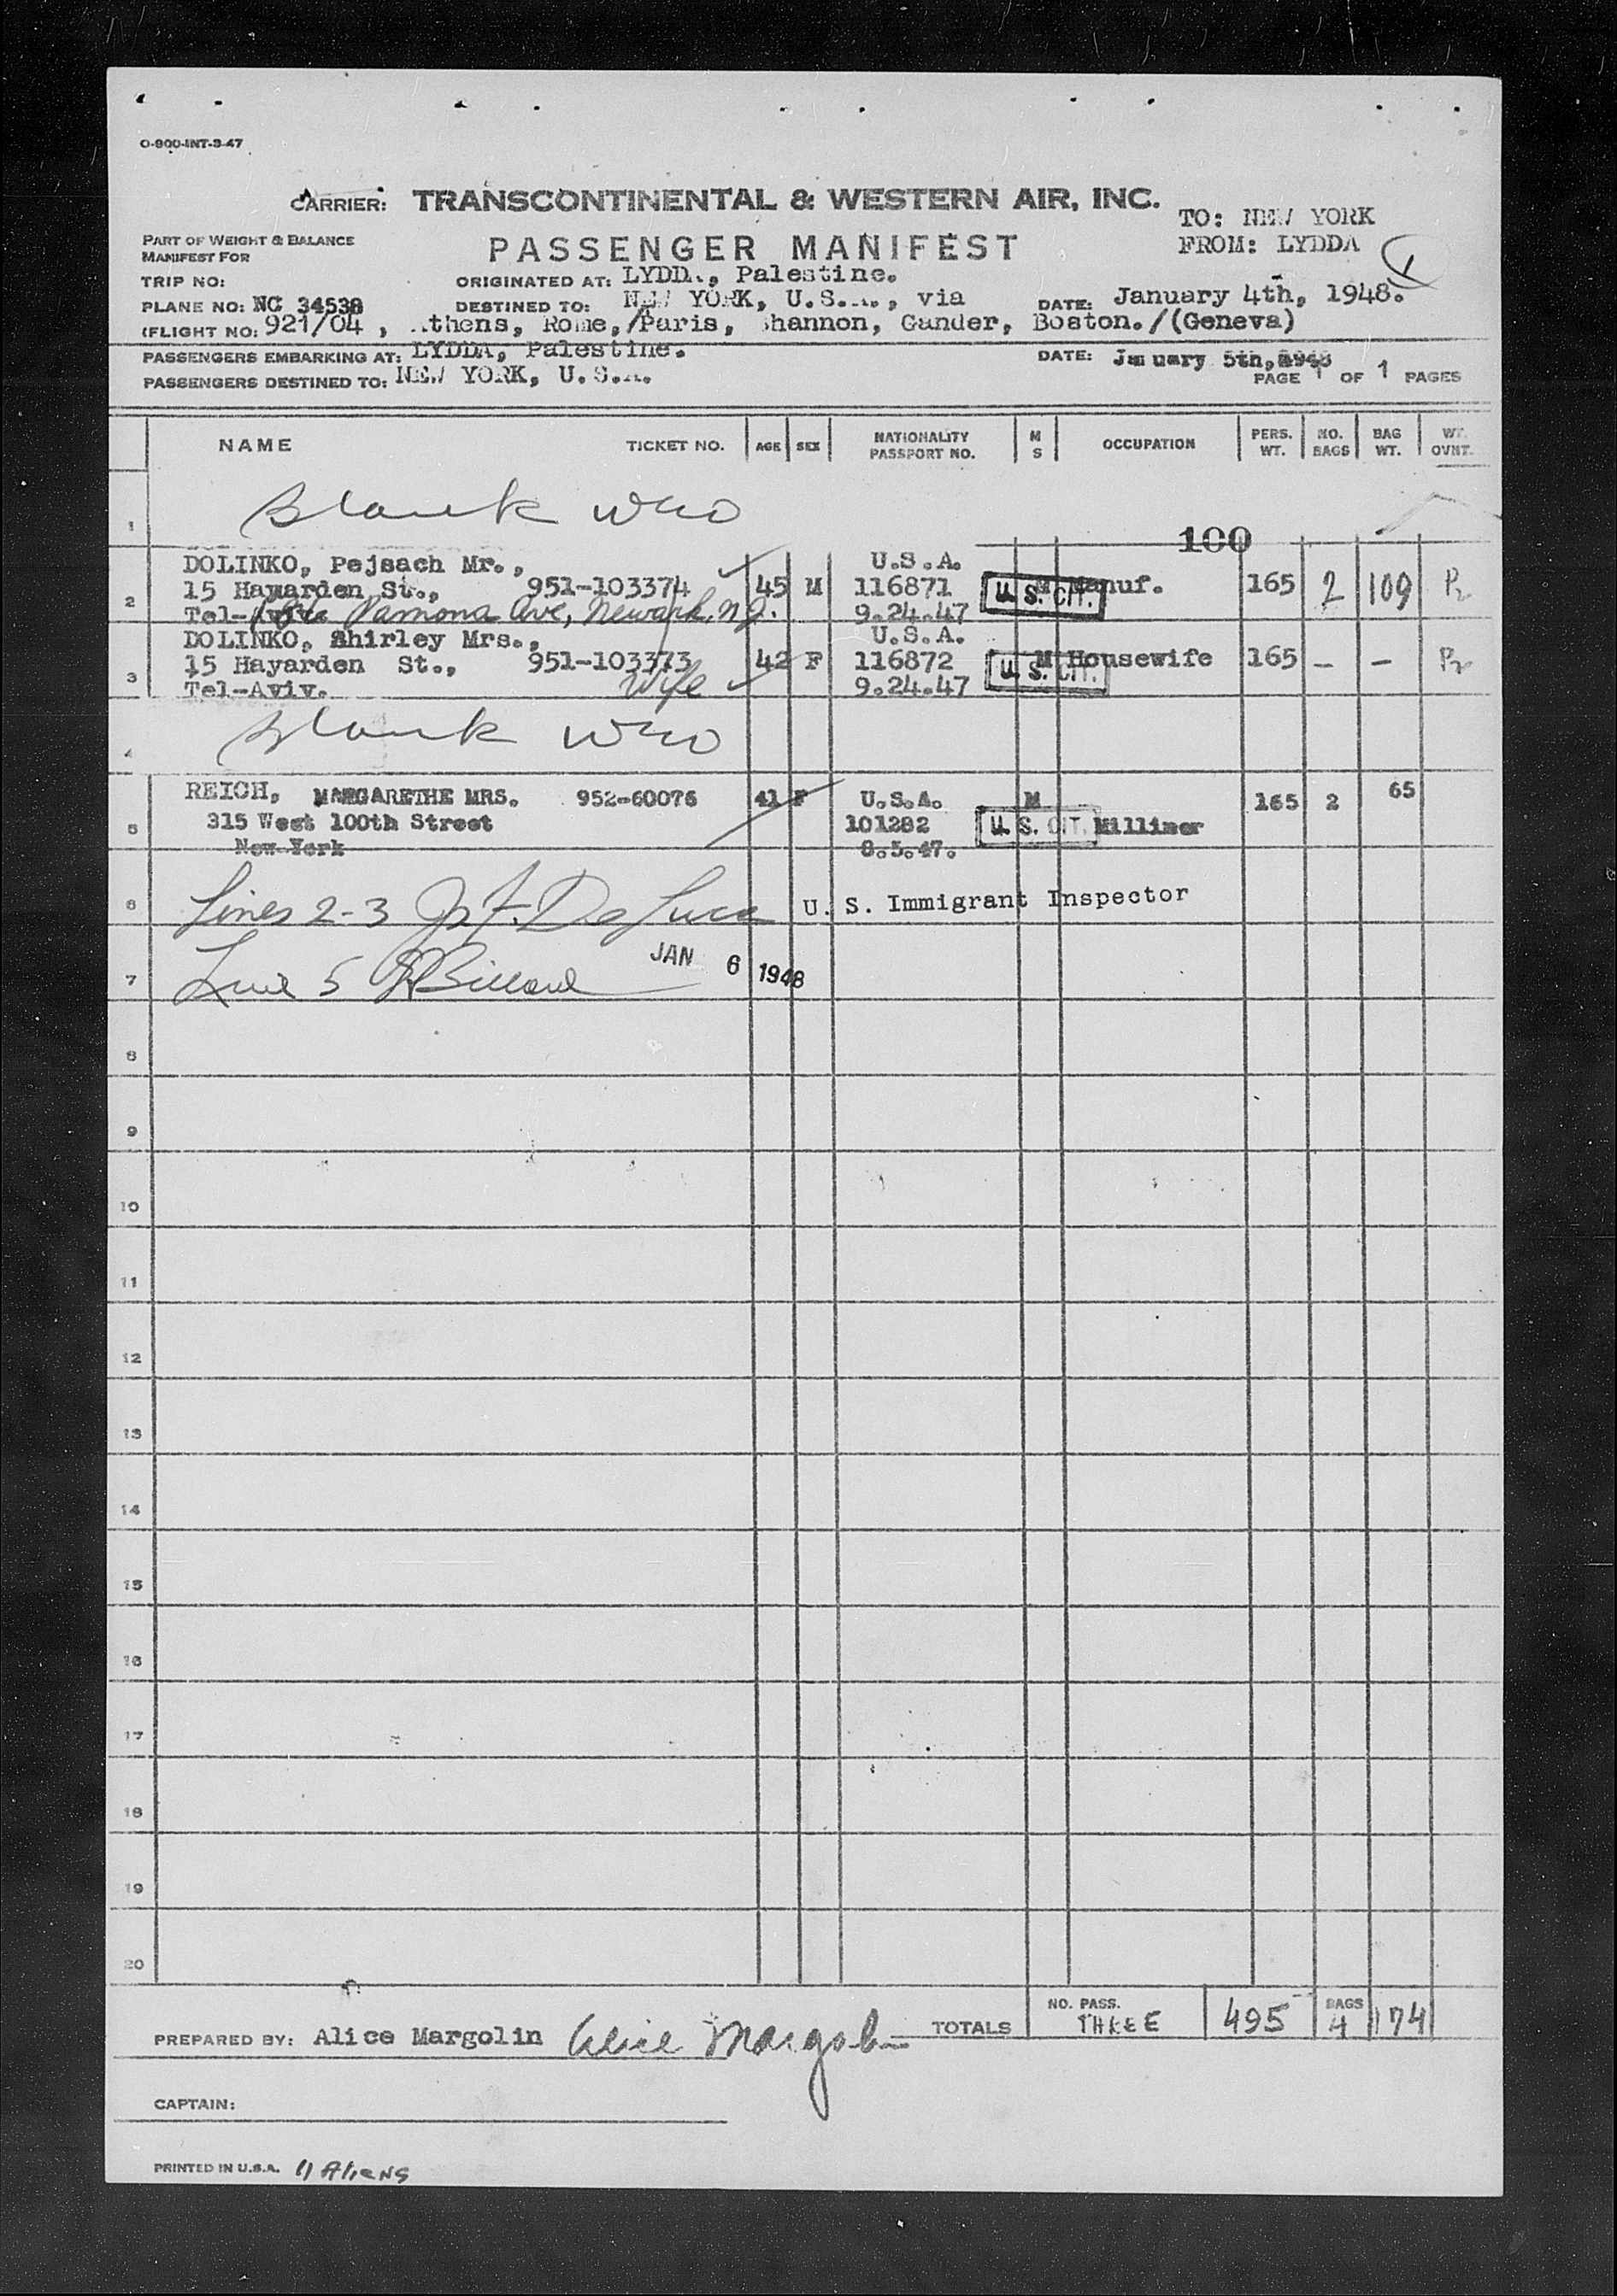 O-900-INT-3-47
CARRIER: TRANSCONTINENTAL & WESTERN AIR, INC.
TO: NEW YORK
PART OF WEIGHT & BALANCE
MANIFEST FOR
PASSENGER MANIFEST
FROM: LYDDA
TRIP NO:
ORIGINATED AT: LYDDA, Palestine.
PLANE NO: NC 34538
DESTINED TO: NEW YORK, U.S.A., via
DATE: January 4th, 1948.
(FLIGHT NO: 921/04 , Athens, Rome,/Paris, Shannon, Gander, Boston./(Geneva)
PASSENGERS EMBARKING AT: LYDDA, Palestine.
DATE: January 5th, 1948
PASSENGERS DESTINED TO: NEW YORK, U.S.A.
PAGE 1 OF 1 PAGES
NAME TICKET NO. AGE SEX NATIONALITY PASSPORT NO. M S OCCUPATION PERS. WT. NO. BAGS BAG WT. WT. OVNT.
1 Blank
100
DOLINKO, Pejsach Mr., U.S.A.
2 15 Hayarden St., 951-103374 45 M 116871 M Manuf. 165 2 109
U. S. CIT.
Tel- Pamona Ave, Newark, N.J. 9.24.47
DOLINKO, Shirley Mrs., U.S.A.
3 15 Hayarden St., 951-103373 42 F 116872 M Housewife 165 - -
U. S. CIT.
Tel-Aviv. Wife 9.24.47
4 Blank
REICH, MARGARETHE MRS. 952-60076 41 F U.S.A. M 165 2 65
5 315 West 100th Street 101282 U. S. CIT. Milliner
New York 8.5.47.
6 Lines 2-3 De Luca U. S. Immigrant Inspector
7 Line 5 JAN 6 1948
8
9
10
11
12
13
14
15
16
17
18
19
20
PREPARED BY: Alice Margolin Alice Margolin TOTALS NO. PASS. THREE 495 BAGS 4 174
CAPTAIN:
PRINTED IN U.S.A. 11 Aliens